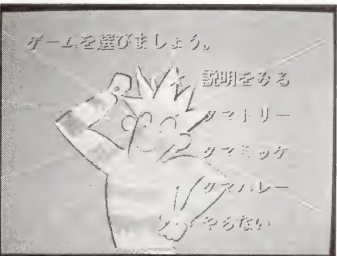 ゲームを選びましょう。
説明をみる
タマトリー
タマミッケ
タマバレー
やらない